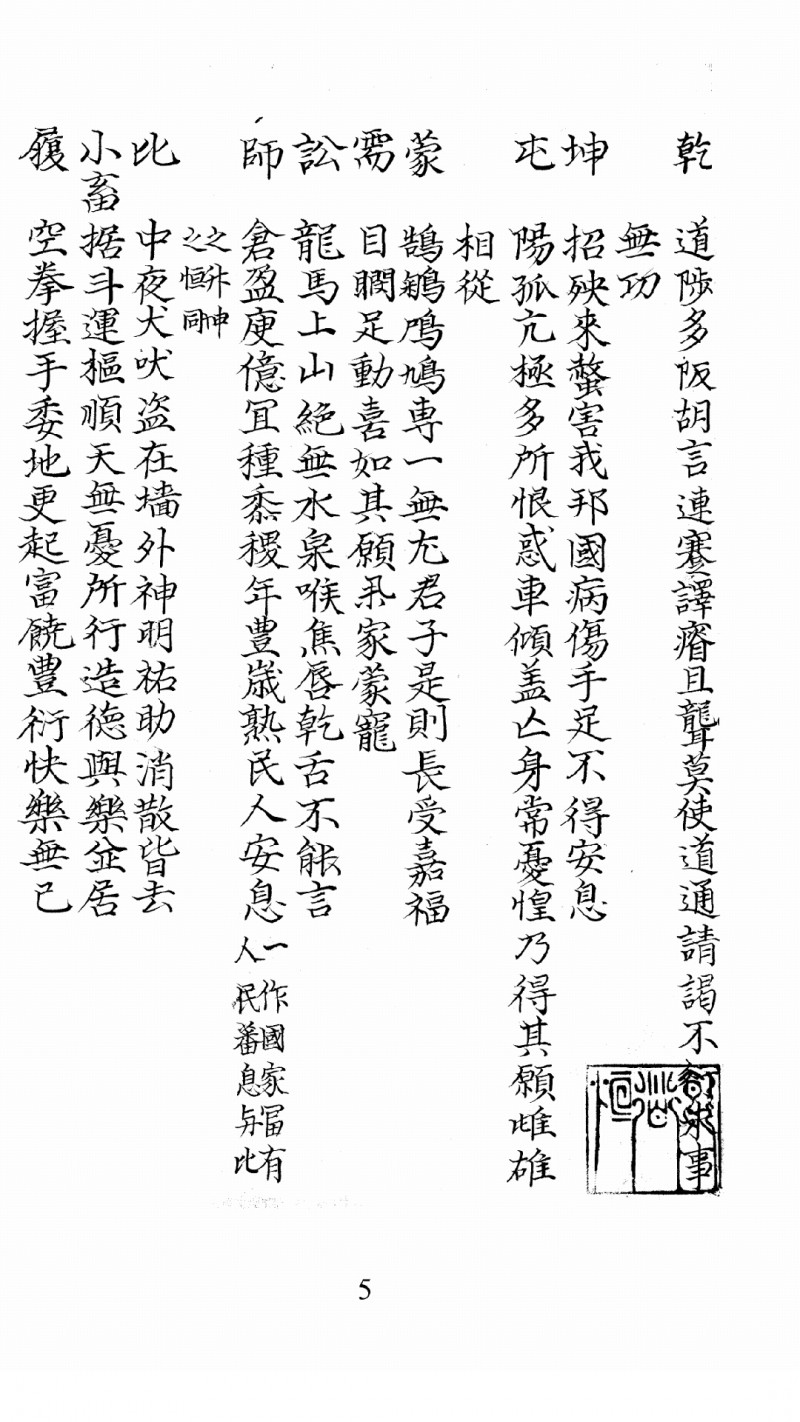 乾 道陟多阪胡言連蹇譯瘖且聾莫使道通請謁不 求事
無功
坤 招殃來螫害我邦國病傷手足不得安息
屯 陽孤亢極多所恨惑車傾盖亡身常憂惶乃得其願雌雄
相從
蒙 鵲鵴鳲鳩専一無尤君子是則長受嘉福
需 目瞤足動喜如其願 家蒙寵
訟 龍馬上山絶無水泉喉焦唇乾舌不能言
師 倉盈庾億宜種黍稷年豊歳熟民人安息 一作國家冨有
人民蕃息与比
之升坤
之恒同
比 中夜犬吠盗在墻外神明祐助消散皆去
小畜 据斗運樞順天無憂所行造德與樂並居
履 空拳握手委地更起富饒豊衍快樂無已
5